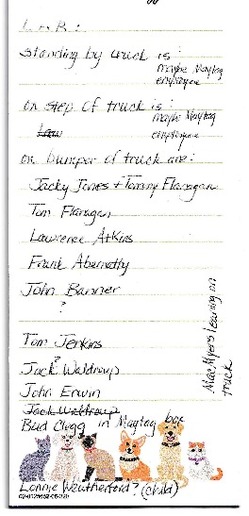 L - R :
standing by truck is :
maybe Maytag
employee
on step of truck is :
maybe Maytag
employee
on bumper of truck are :
Jacky Jones + Tommy Flanagan
Tom Flanagan
Lawrence Atkins
Frank Abernathy
John Banner
?
Tom Jenkins
?
Jack Waldroup
John Erwin
Jack Waldroup
Bud Clugg in Maytag box
Lonnie Weatherford? (child)
Mac Myers leaning on
truck